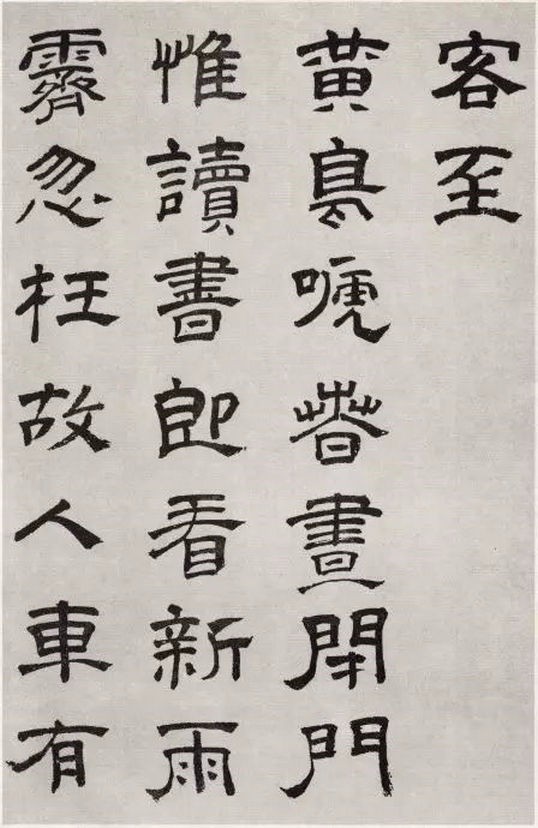 客至
黄鳥嗁春晝閉門
惟讀書即看新雨
霽忽枉故人車有